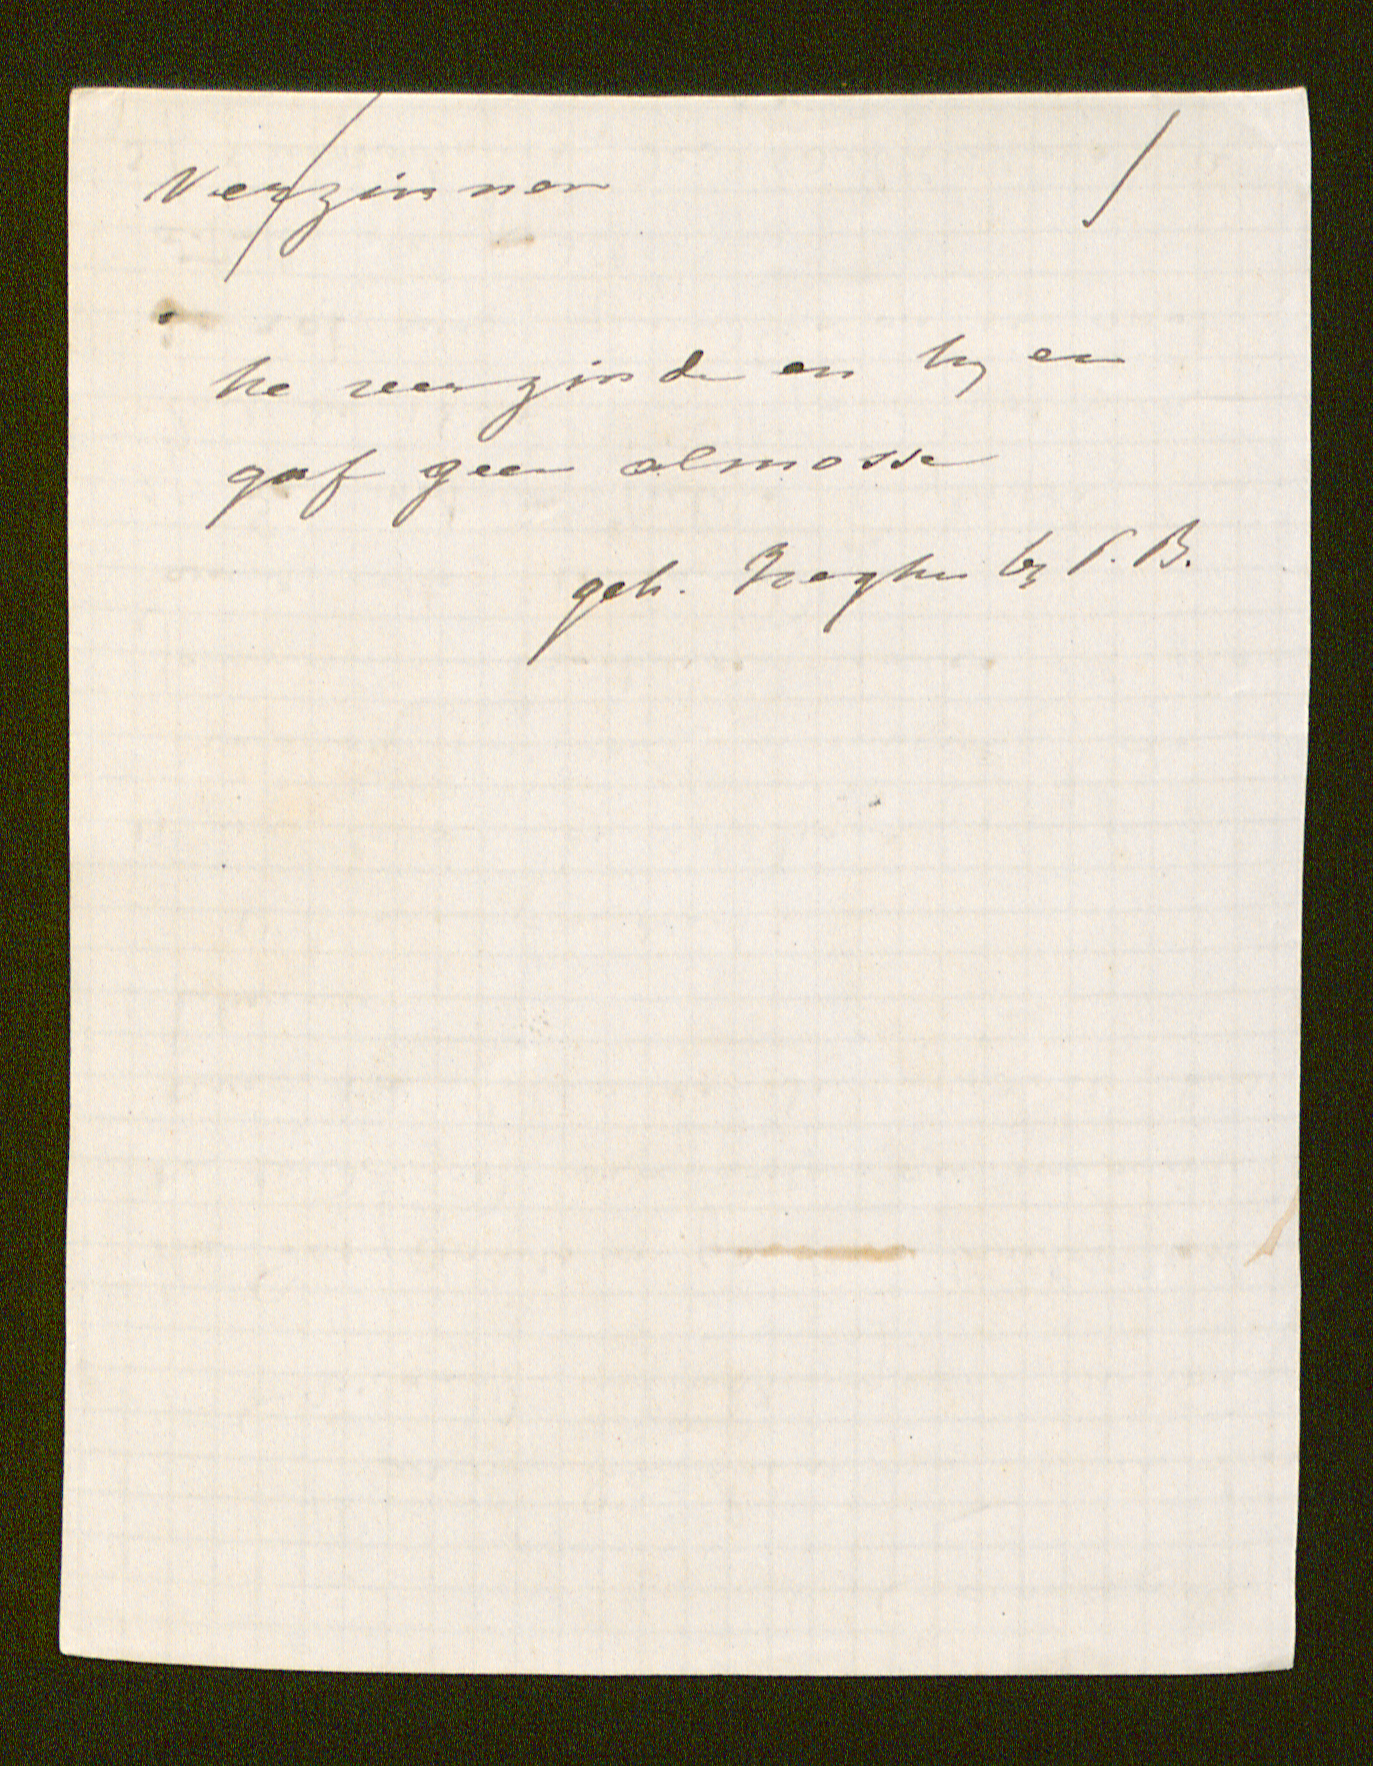 Verzinnen
he verzinde en hy en
gaf geen almosse
geh. Iseghem by P. B.